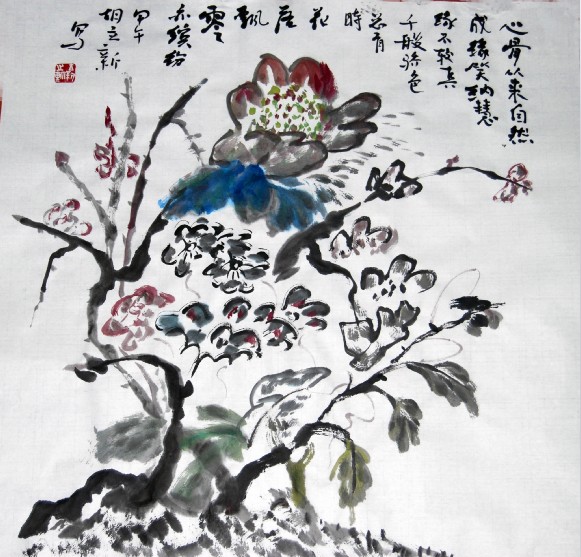 心骨从来自然
成缘笑纳慧
缘不较真
千般骄色
总有
时
花
落
飘
零
亦缤纷
甲午
胡立新
写